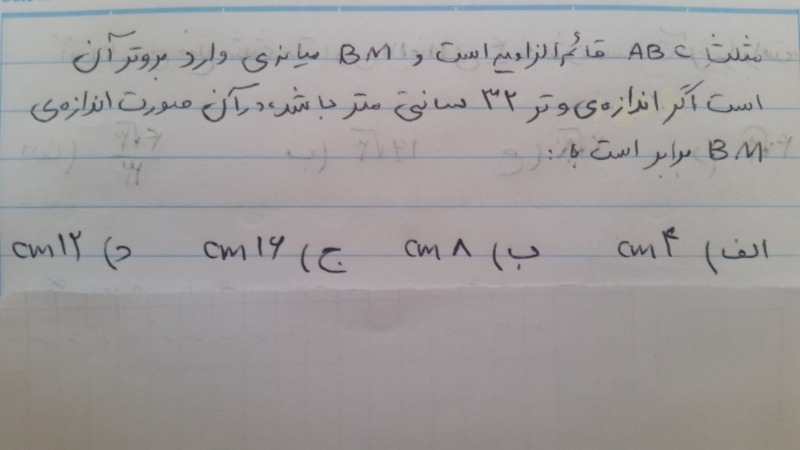 مثلث ABC قائم‌الزاویه است و BM میانه‌ی وارد بروتر آن
است اگر اندازه‌ی وتر ۳۲ سانتی متر باشد، در آن صورت اندازه‌ی
BM برابر است با:
الف) ۴ cm ب) ۸ cm ج) ۱۶ cm د) ۱۲ cm